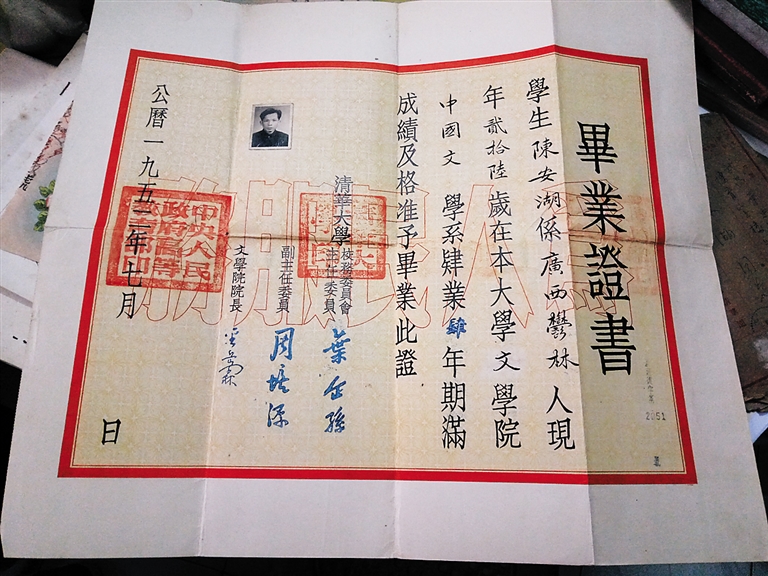 畢業證書
學生陳安湖係廣西鬱林人現
年貳拾陸歲在本大學文學院
中國文學系肄業肆年期滿
成績及格准予畢業此證
清華大學校務委員會
主任委員 葉企孫
副主任委員 周培源
文學院院長 金岳霖
公曆一九五二年七月 日
2051
為人民服務